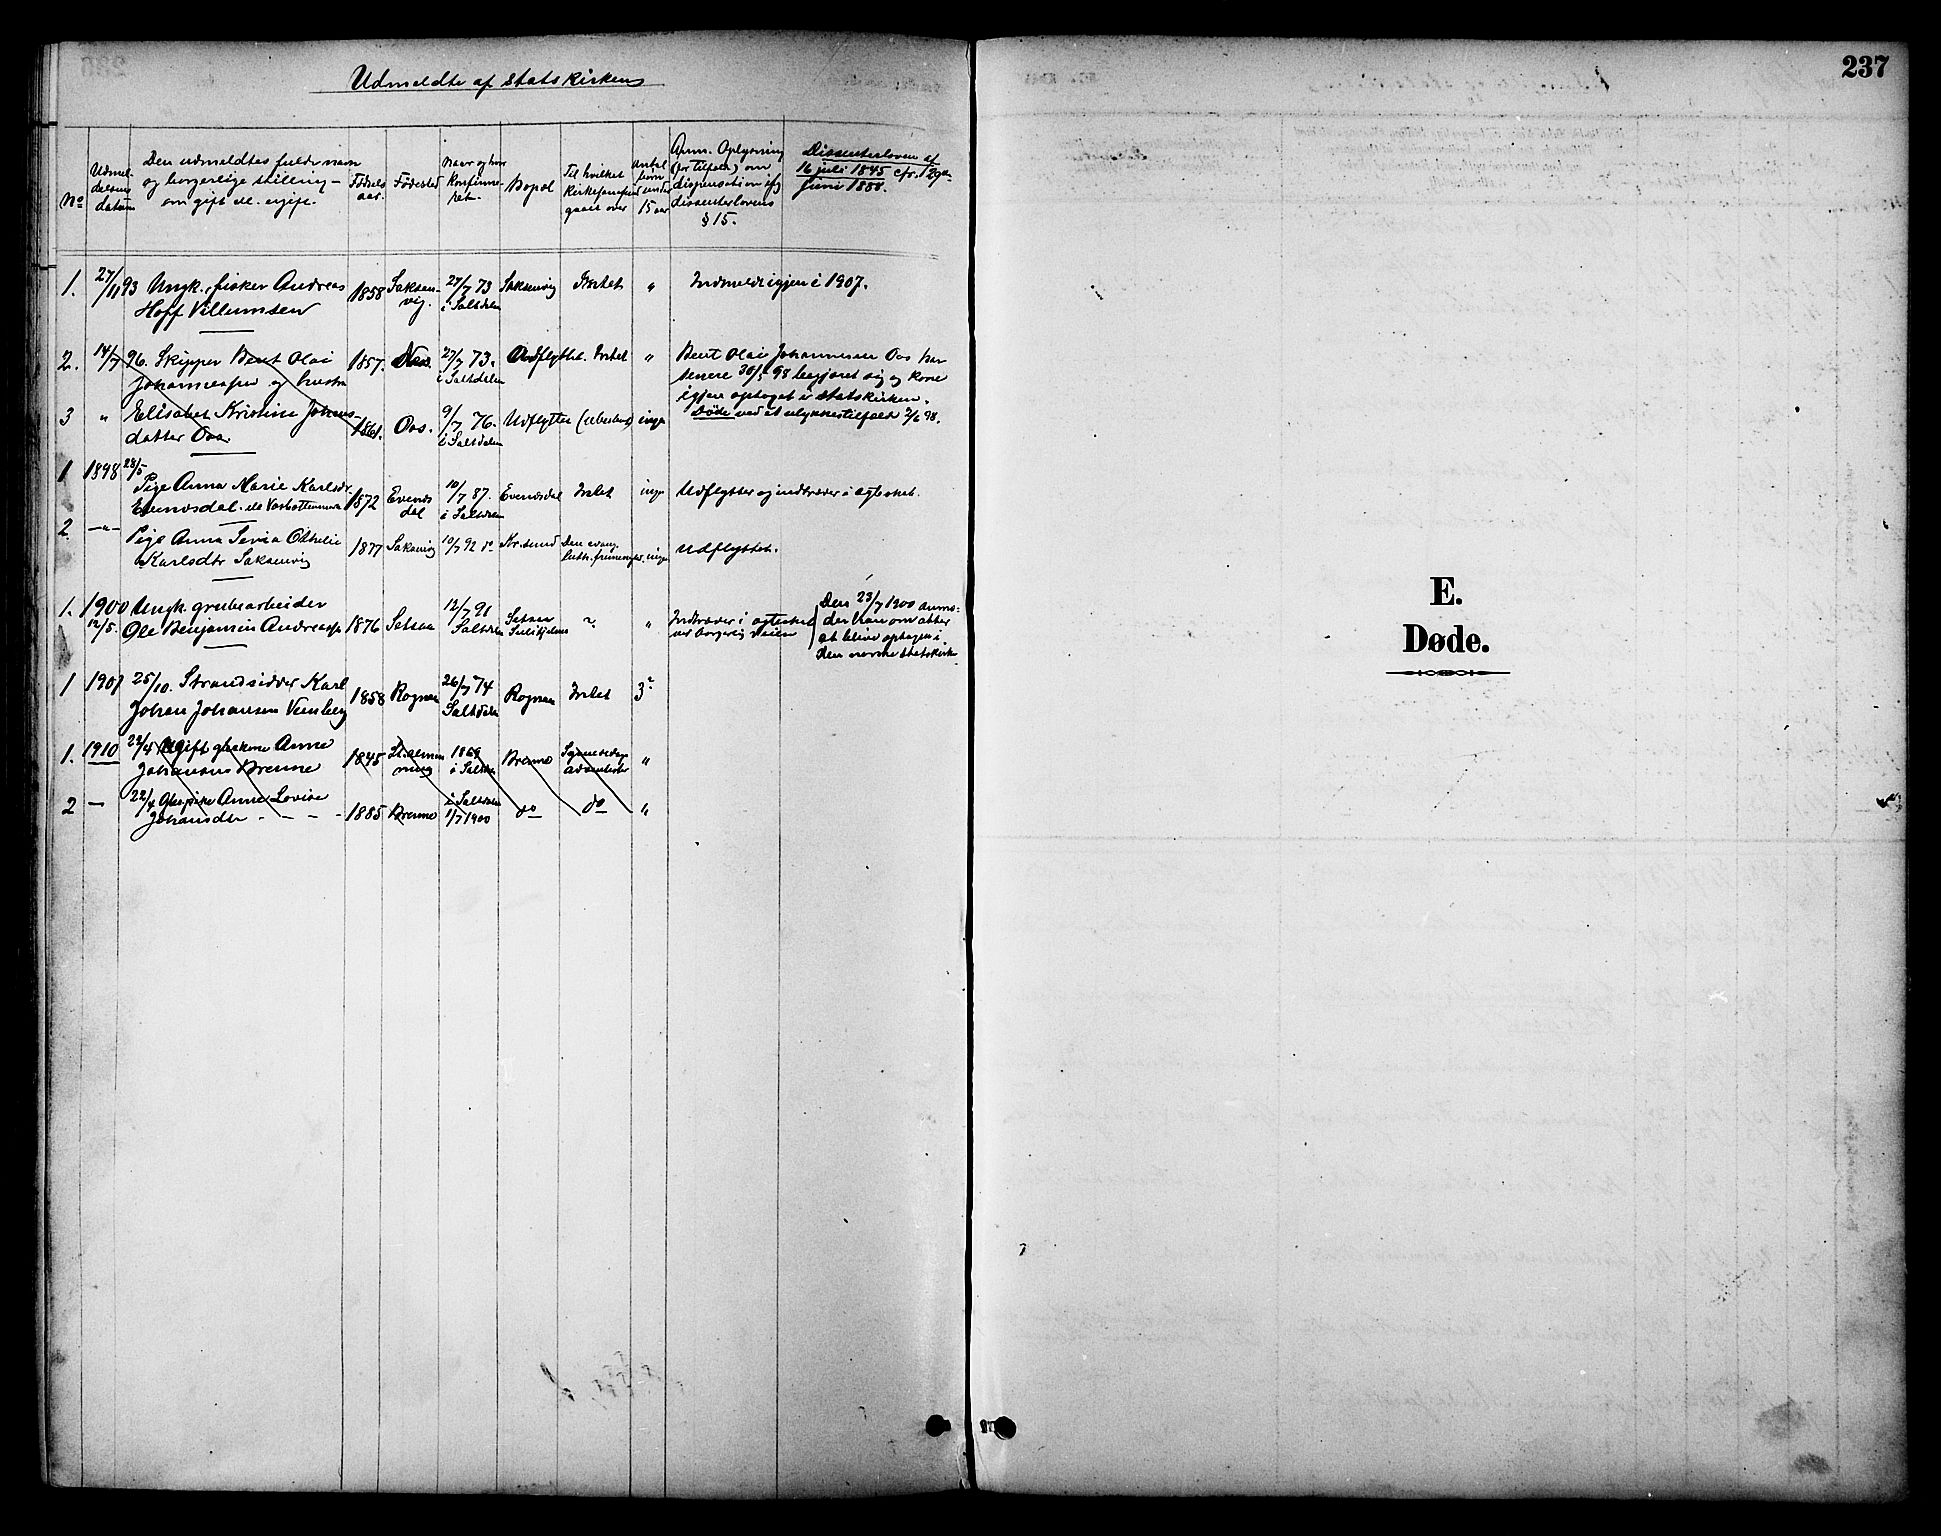 Udmeldte af statskirken
No
Udmel-
delsens
datum
Den udmeldtes fulde navn
og borgerlige stilling –
om gift el. ugift.
Fødsels
aar.
Fødested
Naar og hvor
konfirme-
ret.
Bopæl
Til hvilket
kirkesamfund
gaaet over
Antal
børn
under
15 aar
Anm. Oplysning
(for tilfælde) om
dispensation efg
dissenterlovens
§ 15.
Dissenterloven af
16 juli 1845 cfr.
juni 1888.
1. 27/11 93 Ungk., fisker Andreas 1858 Saksen- 27/7 73 Saksenvig Intet " Indmeldt igjen i 1907.
Hoff Villumsen vig. i Saltdalen
2. 14/7 96. Skipper Bent Olai 1857. 27/7 73. Udflyttet. Intet " Bent Olai Johannesen Oos har
Johannessen og hustru i Saltdalen senere 30/5 98 begjæret sig og kone
igjen optaget i statskirken.
3 " Elisabet Kristine Johns- 1861. Oos. 9/7 76. Udflytter ingen Døde ved et ulykkestilfælde 2/6 98.
datter Oos. i Saltdalen
1 1898 28/5
Pige Anna Marie Karlsdr 1872 Evenes 10/7 87. Evenesdal Intet inge Udflytter og indtræder i ægteskab.
Evenesdal dal i Saltdalen
2. —"— Pige Anna Ot­helie 1877 Saksenvig 10/7 92 do Kr.sund Den evang. Udflyttet.
Karlsdtr Saksenvig luth. frimenighed. inge
1. 1900 Ungk. grubearbeider 12/7 91 Setsaa Den 23/7 1900 anmo-
12/5. Ole Benjamin Andreassen 1876 Setsaa Saltdalen Sulitjelma ? " Indtræder i ægteskab der han om atter
ved borgerlig vielse at blive optagen i
Den norske Statskirke
1 1907 25/10. Strandsidder Karl 1858 Rognan 26/7 74 Rognan Intet 3
Johan Johansen Saltdalen
1. 1910 22/4 Ugift Anne 1845 1860 Brenne Syvendedags
Johansdr Brenne i Saltdalen adventister "
2 — 22/4 Pige Anne Lovise 1885 Brenne i Saltdalen do do "
Johansdtr - - - - 1/7 1900
237
E.
Døde.